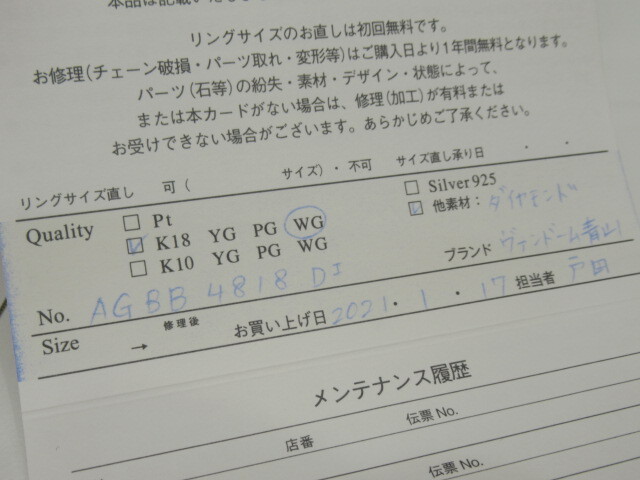 リングサイズのお直しは初回無料です。
お修理(チェーン破損・パーツ取れ・変形等)はご購入日より1年間無料となります。
パーツ(石等)の紛失・素材・デザイン・状態によって、
または本カードがない場合は、修理(加工)が有料または
お受けできない場合がございます。あらかじめご了承ください。
リングサイズ直し 可( サイズ)・不可 サイズ直し承り日 ・ ・
Quality □ Pt □ Silver925
☑ K18 YG PG WG ☑ 他素材: ダイヤモンド
□ K10 YG PG WG
No. AGBB 4818 DI ブランド ヴァンドーム青山
Size → 修理後 お買い上げ日 2021・1・17 担当者 戸田
メンテナンス履歴
店番 伝票No.
伝票No.